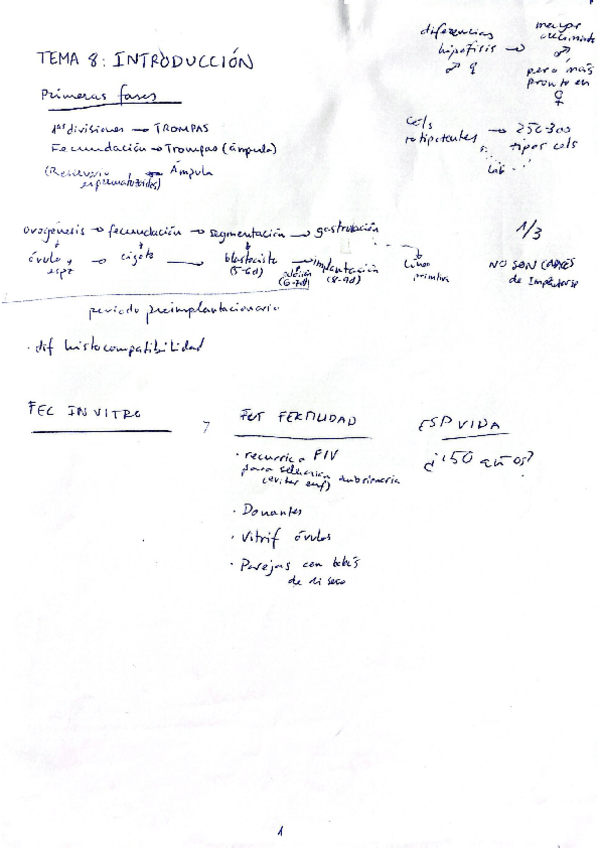 TEMA 8: INTRODUCCIÓN
diferencias
hipófisis → mayor
crecimiento
♂ ♀ ♂
pero más
pronto en
♀
Primeras fases
1as divisiones → TROMPAS
Fecundación → Trompas (ámpula)
(Reservorio → Ámpula
espermatozoides)
Cels
totipotentes → 250-300
tipos cels
ovogénesis → fecundación → segmentación → gastrulación
óvulo y → cigoto → blastocisto → implantación
espz (5-6d) (6-7d) (8-9d)
Línea
primitiva
1/3
NO SON CAPACES
de Implantarse
periodo preimplantacionario
· dif histocompatibilidad
FEC INVITRO
FUT FERTILIDAD
· recurrir a FIV
para selección
(evitar enf) embrionaria
· Donantes
· Vitrif óvulos
· Parejas con bebés
de diseño
ESP VIDA
¿150 años?
1